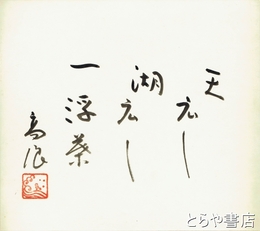 天広し
湖広し
一浮葉
高浪
とらや書店